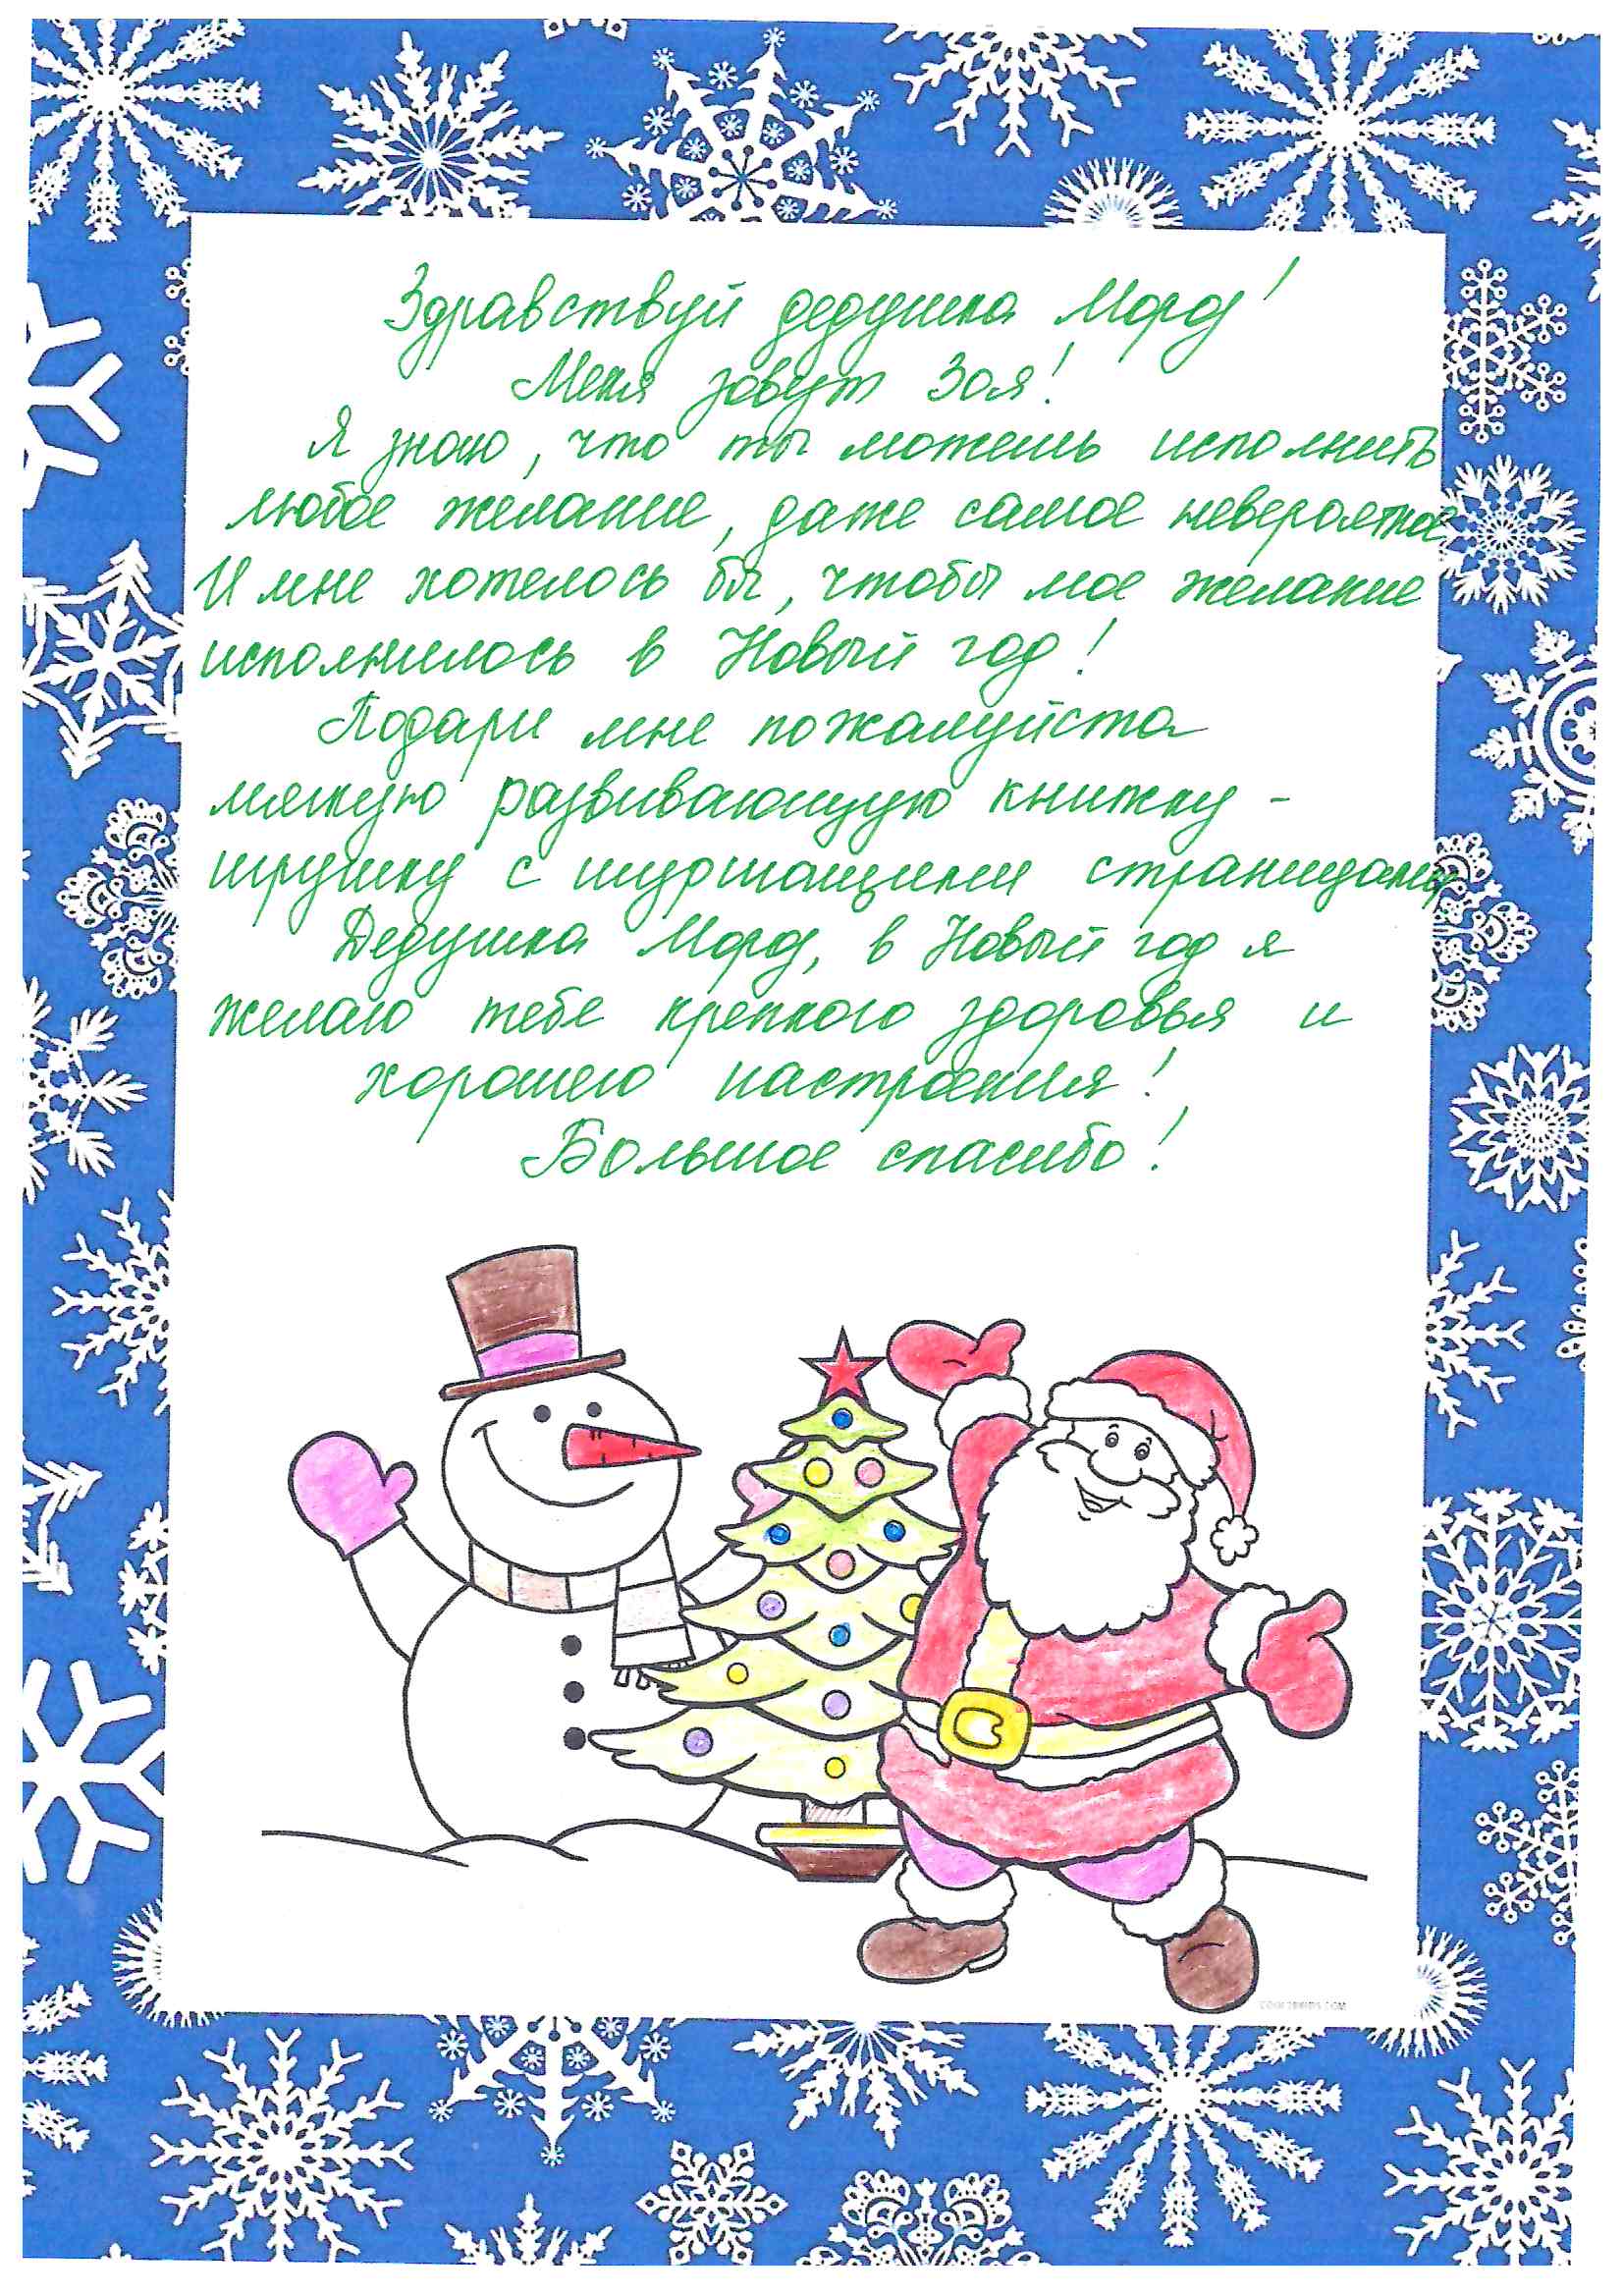 Здравствуй дедушка Мороз!
Меня зовут Зоя!
Я знаю, что ты можешь исполнить
любое желание, даже самое невероятное.
И мне хотелось бы, чтобы мое желание
исполнилось в Новый год!
Подари мне пожалуйста
мягкую развивающую книжку -
игрушку с шуршащими страницами.
Дедушка Мороз, в Новый год я
желаю тебе крепкого здоровья и
хорошего настроения!
Большое спасибо!